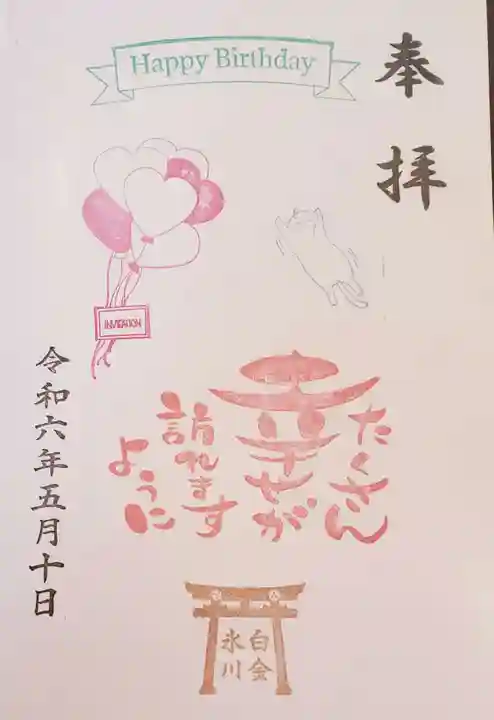 Happy Birthday
奉拝
INVITATION
たくさん
幸せが
訪れます
ように
令和六年五月十日
白金
氷川